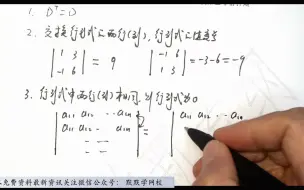 1. Dᵀ=D
2. 交换行列式二两行(列), 行列式值变号
| 1 3 | = 9 | -1 6 | = -3-6 = -9
| -1 6 | | 1 3 |
3. 行列式中两行(列)相同, 则行列式为0
| a₁₁ a₁₂ ... a₁ₙ | = | a₁₁ a₁₂ ... a₁ₙ
| a₁₁ a₁₂ ... a₁ₙ |
免费资料最新资讯关注微信公众号: 默默学网校